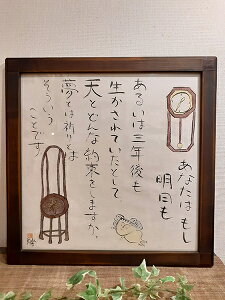 あなたはもし
明日も
あるいは三年後も
生かされていたとして
天とどんな約束をしますか、
夢とは祈りとは
そういう
ことです